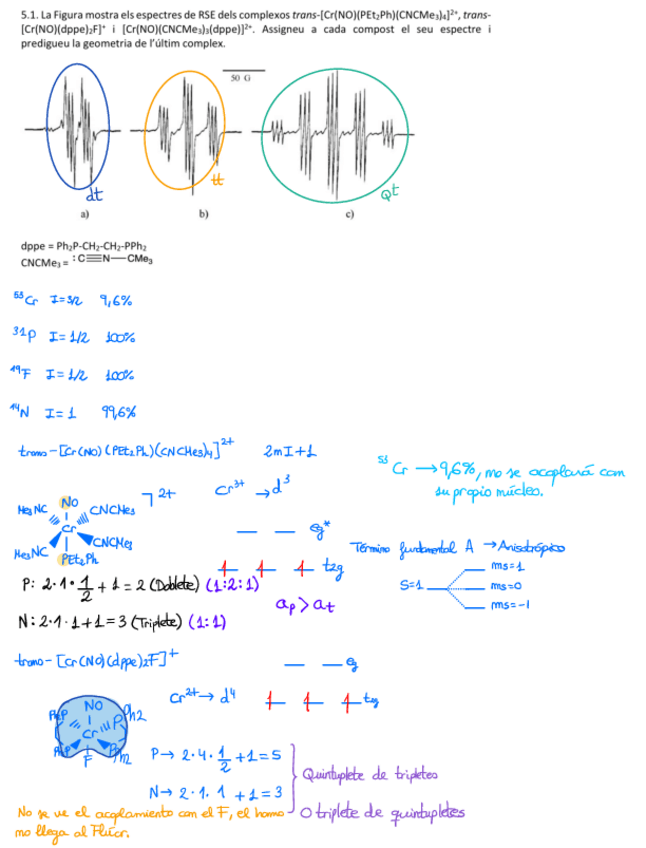 5.1. La Figura mostra els espectres de RSE dels complexos trans-[Cr(NO)(PEt₂Ph)(CNCMe₃)₄]²⁺, trans-
[Cr(NO)(dppe)₂F]⁺ i [Cr(NO)(CNCMe₃)₃(dppe)]²⁺. Assigneu a cada compost el seu espectre i
predigueu la geometria de l'últim complex.
50 G
dt
tt
Qt
a)
b)
c)
dppe = Ph₂P-CH₂-CH₂-PPh₂
CNCMe₃ = :C≡N—CMe₃
⁵³Cr I=3/2 9,6%
³¹P I=1/2 100%
¹⁹F I=1/2 100%
¹⁴N I=1 99,6%
trans-[Cr(NO)(PEt₂Ph)(CNCMe₃)₄]²⁺ 2mI+1
⁵³Cr → 9,6%, no se acoplará con
su propio núcleo.
Cr³⁺ → d³
NO
Me₃NC
CNCMe₃
2+
Cr
Me₃NC
CNCMe₃
PEt₂Ph
eg*
t2g
Término fundamental A → Anisotrópico
S=1
ms=1
ms=0
ms=-1
P: 2·1·1/2 + 1 = 2 (Doblete) (1:2:1)
aP > at
N: 2·1·1+1=3 (Triplete) (1:1)
trans-[Cr(NO)(dppe)₂F]⁺
eg
Cr²⁺ → d⁴
tg
NO
Ph2
Cr
F
P → 2·4·1/2 +1=5
N → 2·1·1 +1=3
Quintuplete de tripletes
O triplete de quintupletes
No se ve el acoplamiento con el F, el homo
no llega al Flúor.